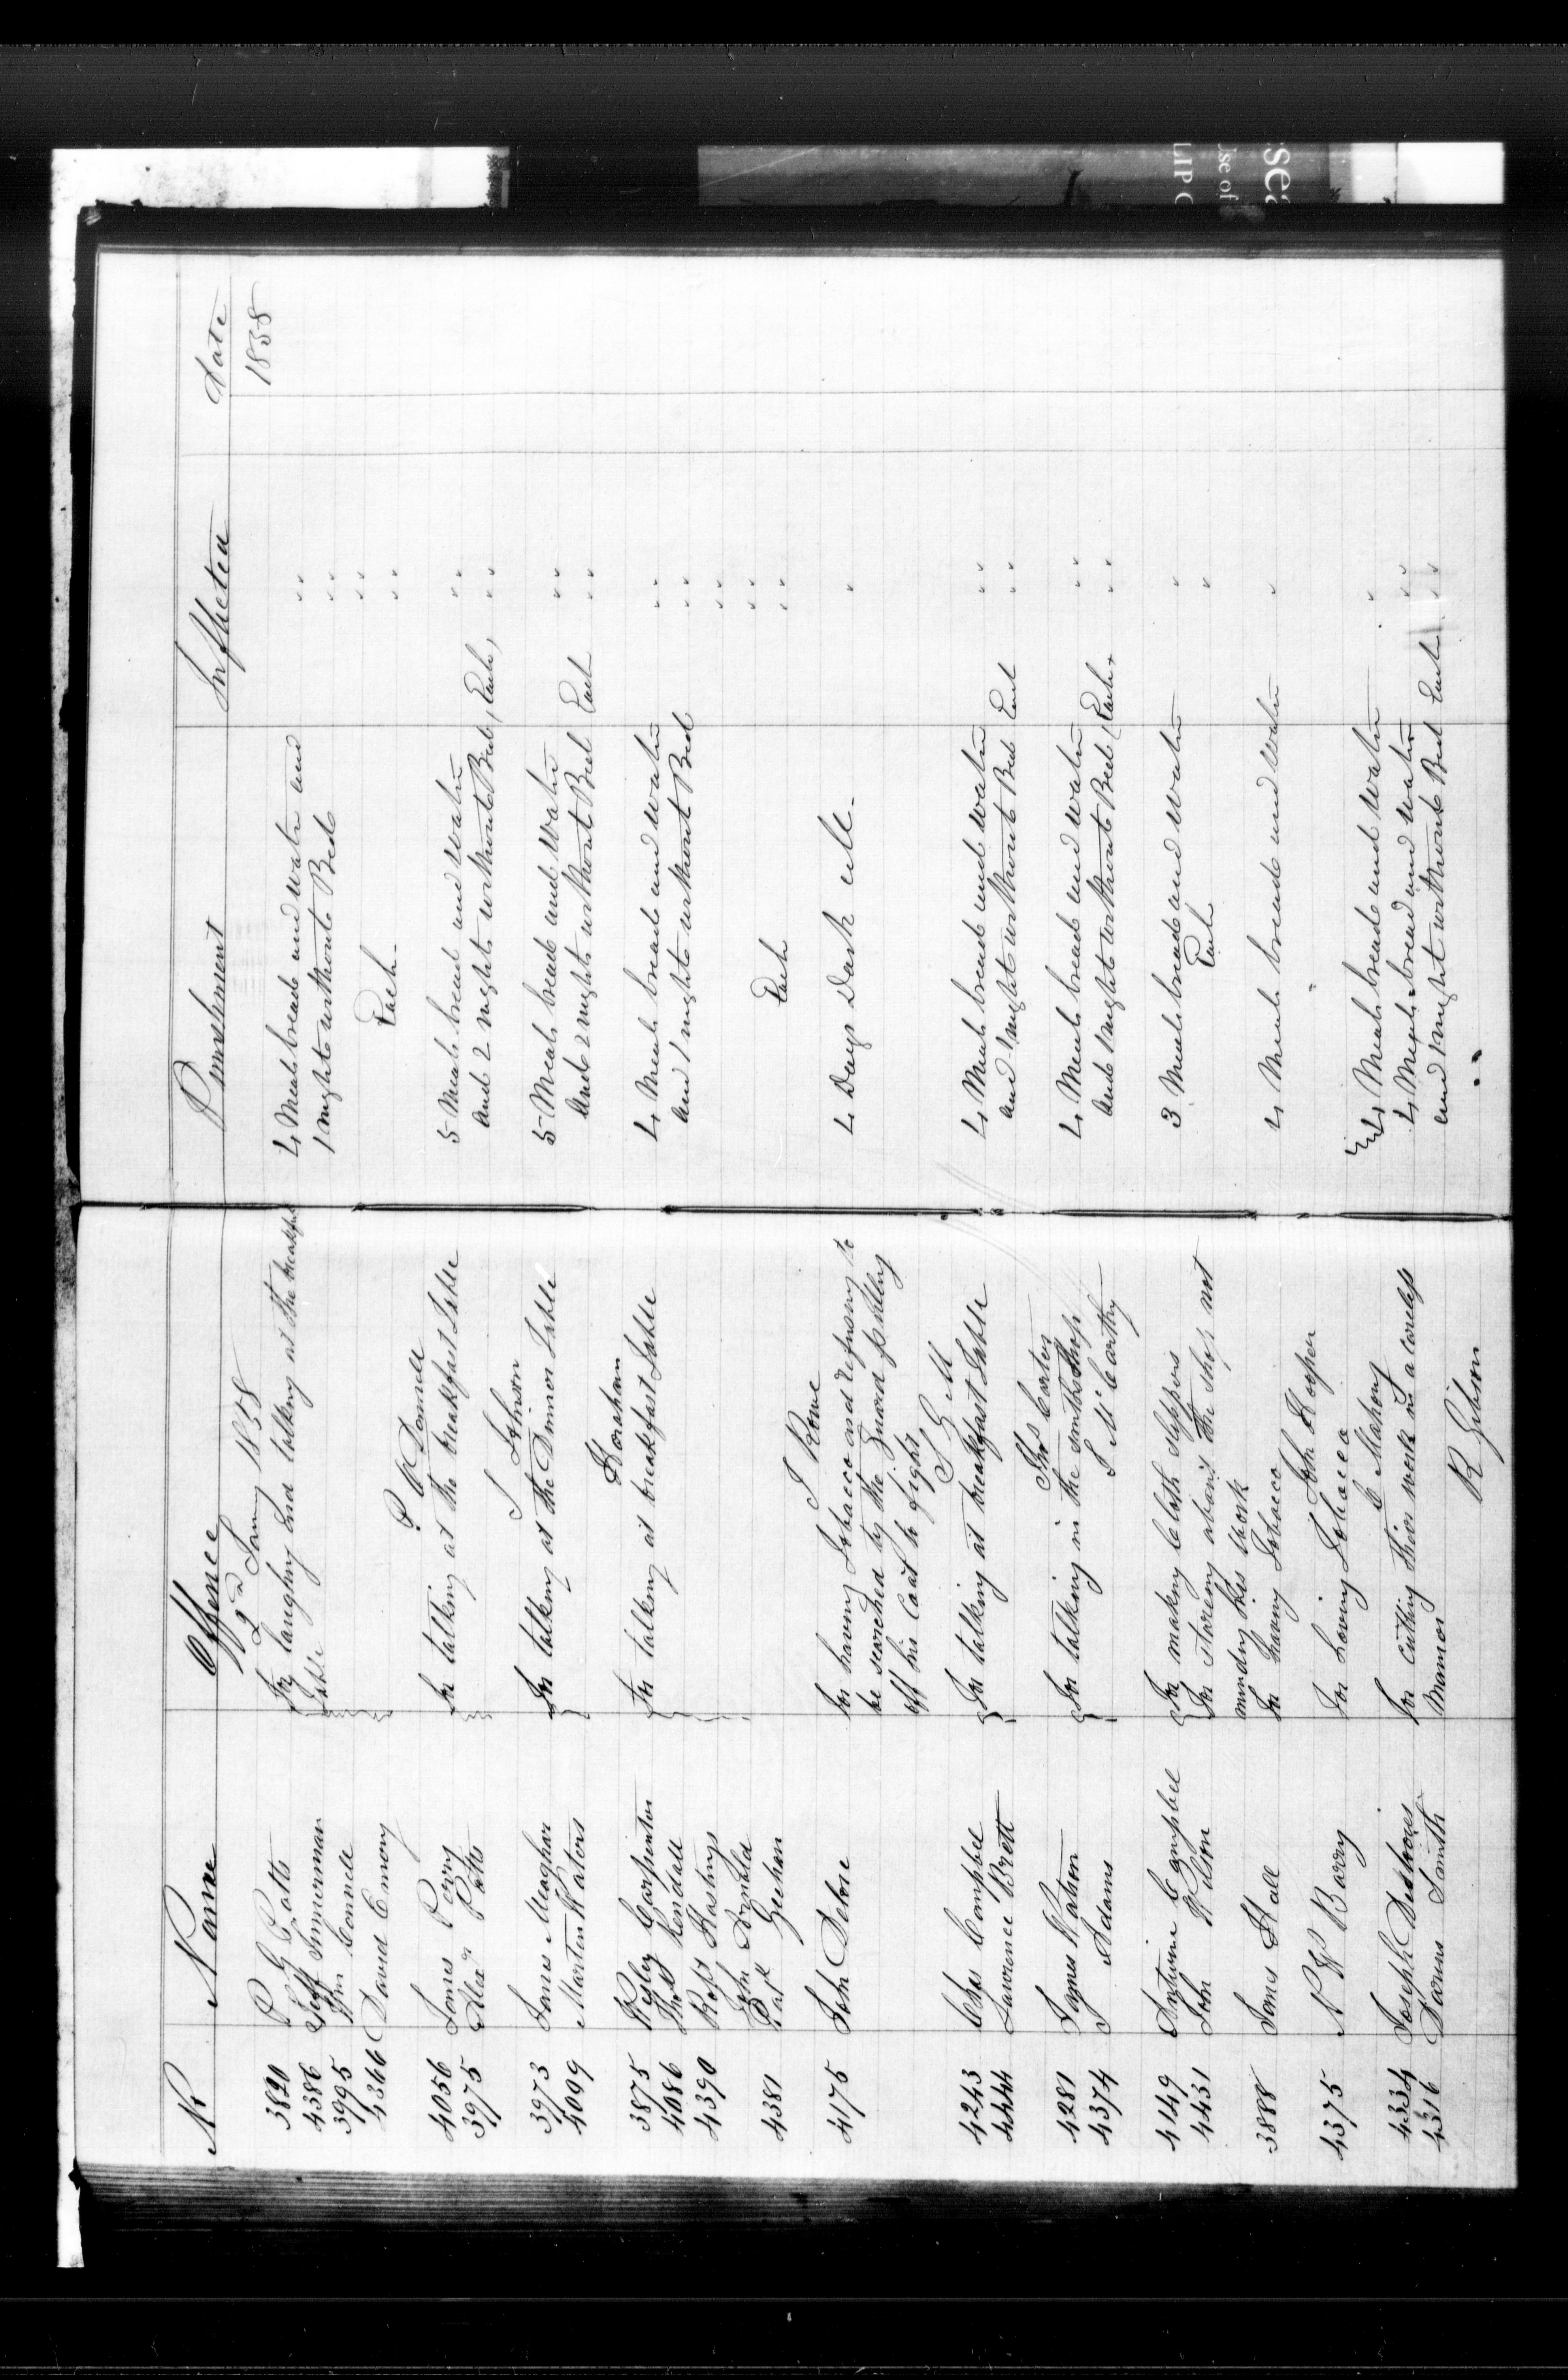 No Name Offence Punishment Inflicted Date
2nd Jany 1858 1858
3820 P G Potts For laughing and talking at the breakfast 4 Meals bread and water and
4386 Jeff Timmerman Table 1 night without Bed
3995 Wm Connell
4366 David Emory Each
P O Donnell
4056 James Perry for talking at the breakfast Table 5 Meals bread and water
3975 Alexr Potts and 2 nights without Bed, Each,
J Johnson
3973 James Meaghar For talking at the Dinner Table 5 Meals bread and water
4099 Marten Waters and 2 nights without Bed Each
Horahan
3875 Wesley Carpenter for talking at breakfast Table 4 Meals bread and water
4086 Thos Kendall and 1 night without Bed
4390 Robt Hastings
John Donald
4381 Patk Geehan Each
J Rowe
4175 John Delore for having Tobacco and refusing to 4 Days Dark Cell.
be searched by the Guard pulling
off his Coat to fight
S G M
4243 Chas Campbell For talking at breakfast Table 4 Meals bread and water
4444 Lawrence Brett and 1 night without Bed Each
Thos Carter
4281 James Watson For talking in the smiths Shop 4 Meals bread and water
4374 J Adams J McCarthy and 1 night without Bed, Each
4149 Antwine Campbell For making Cloth slippers 3 Meals bread and water
4431 John Wilson For stareing about the shop not Each
minding his work
3888 James Hall For having Tobacco 4 Meals bread and water
John Hooper
4375 N W Barry For having Tobacco 4 Meals bread and water
C Mahony
4334 Joseph for cutting their work in a careless 4 Meals bread and water
4316 Smith Manner and 1 night without Bed Each
R Gibson
sea
Use of
LIP C